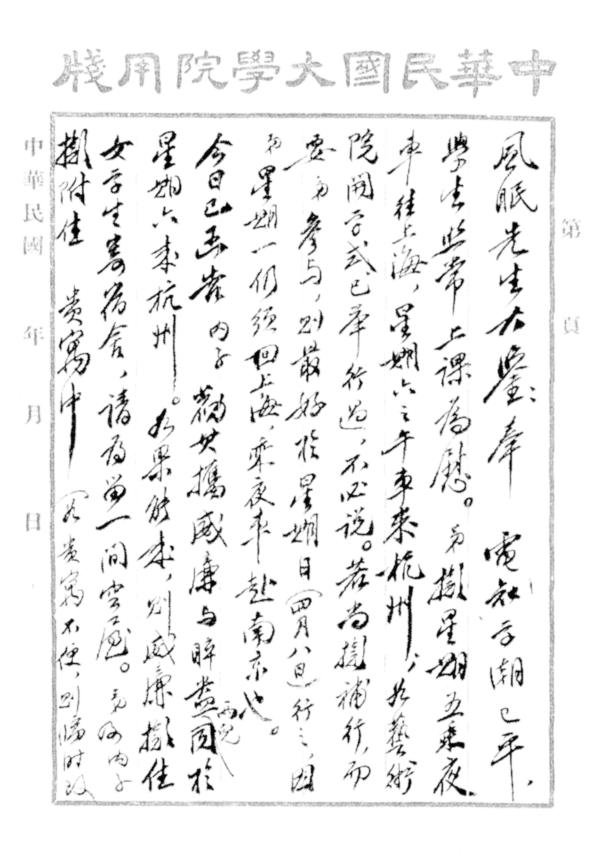 中華民國大學院用牋
第 頁
風眠先生大鑒:奉 電知学潮已平,
學生照常上課為慰。弟擬星期五乘夜
車往上海,星期六之午車來杭州;如藝術
院開学式已舉行過,不必說。若尚擬補行,而
要弟參与,則最好於星期日(四月八日)行之,因
弟星期一仍須回上海,乘夜車赴南京也。
今日已函告 內子 勸其攜威廉与睟盎兩兒同於
星期六來杭州。如果能來,則威廉擬住
女学生寄宿舍,請為留一間空屋。弟与內子
擬附住 貴寓中 (若貴寓不便,則臨時改
中華民國 年 月 日